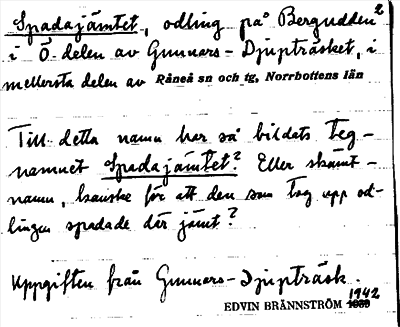 Spadajämtet, odling på Bergudden²
i Ö. delen av Gunnars-Djupträsket, i
mellersta delen av Råneå sn och tg, Norrbottens län
Till detta namn har så bildats teg-
namnet Spadajämtet? Eller skämt-
namn, kanske för att den som tog upp od-
lingen spadade där jämt?
Uppgiften från Gunnars-Djupträsk.
1942
EDVIN BRÄNNSTRÖM 1939